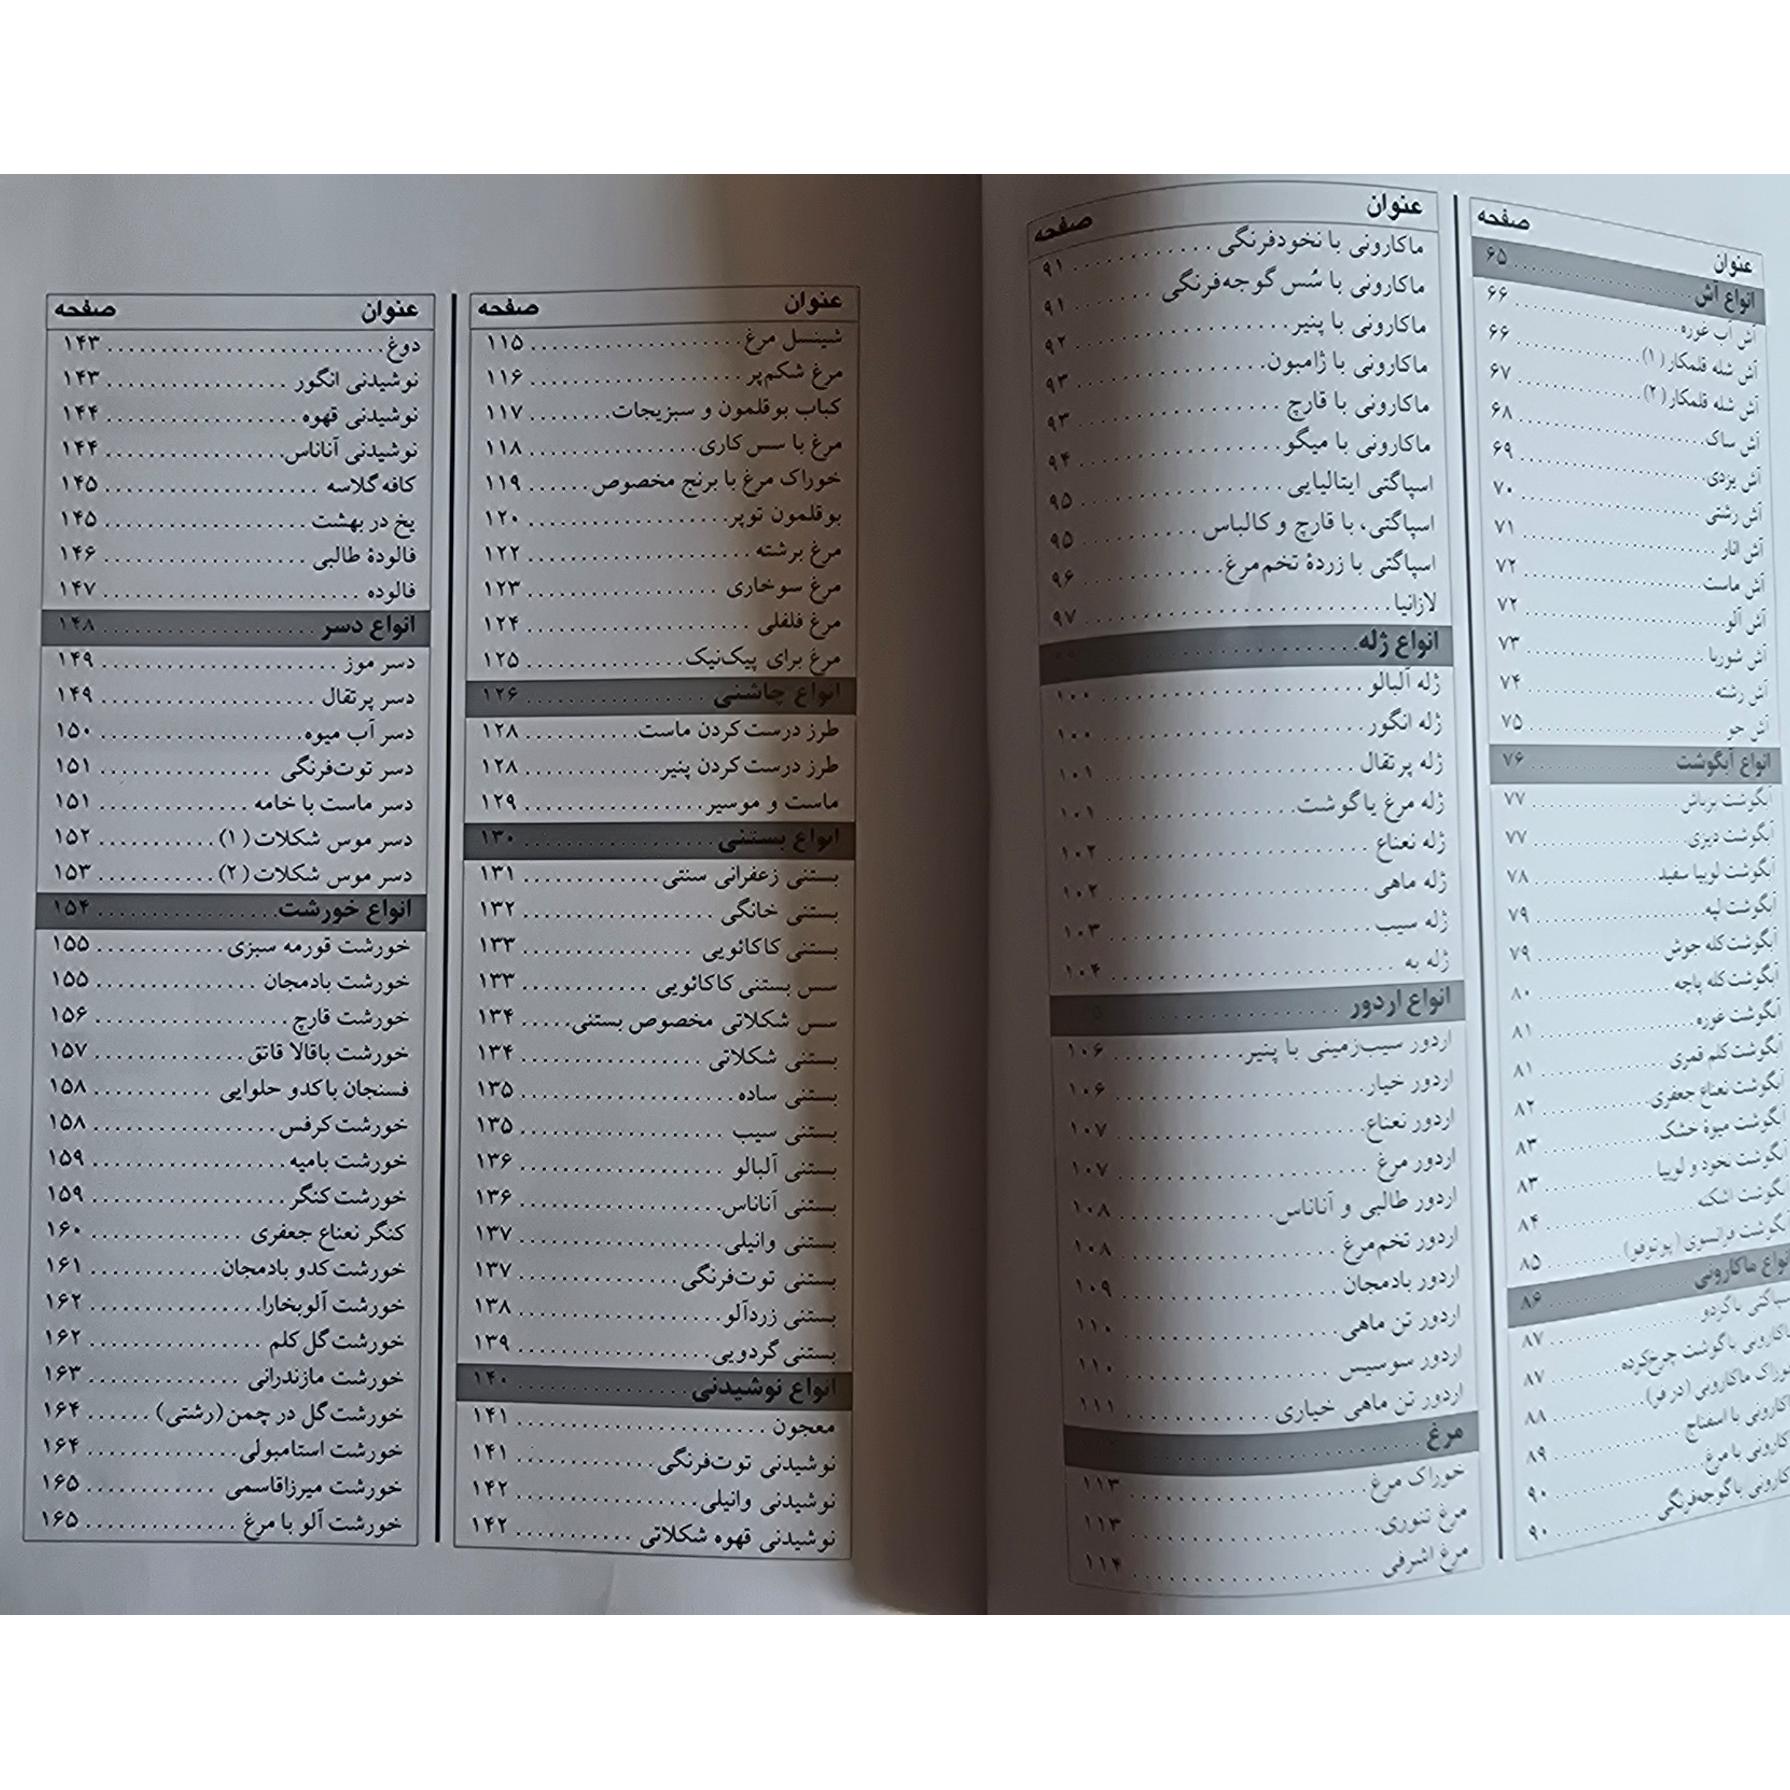 عنوان صفحه
انواع آش ۶۵
آش آب غوره ۶۶
آش شله قلمکار (۱) ۶۶
آش شله قلمکار (۲) ۶۷
آش ساک ۶۸
آش یزدی ۶۹
آش رشتی ۷۰
آش انار ۷۱
آش ماست ۷۲
آش آلو ۷۲
آش شوربا ۷۳
آش رشته ۷۴
آش جو ۷۵
انواع آبگوشت ۷۶
آبگوشت بزباش ۷۷
آبگوشت دیزی ۷۷
آبگوشت لوبیا سفید ۷۸
آبگوشت لپه ۷۹
آبگوشت کله جوش ۷۹
آبگوشت کله پاچه ۸۰
آبگوشت غوره ۸۱
آبگوشت کلم قمری ۸۱
آبگوشت نعناع جعفری ۸۲
آبگوشت میوهٔ خشک ۸۳
آبگوشت نخود و لوبیا ۸۳
آبگوشت اشکنه ۸۴
آبگوشت فرانسوی (پوتوفو) ۸۵
انواع ماکارونی ۸۶
اسپاگتی با گردو ۸۷
ماکارونی با گوشت چرخ‌کرده ۸۷
خوراک ماکارونی (در فر) ۸۸
ماکارونی با اسفناج ۸۹
ماکارونی با مرغ ۹۰
ماکارونی با گوجه‌فرنگی ۹۰
عنوان صفحه
ماکارونی با نخودفرنگی ۹۱
ماکارونی با سُس گوجه‌فرنگی ۹۱
ماکارونی با پنیر ۹۲
ماکارونی با ژامبون ۹۳
ماکارونی با قارچ ۹۳
ماکارونی با میگو ۹۴
اسپاگتی ایتالیایی ۹۵
اسپاگتی، با قارچ و کالباس ۹۵
اسپاگتی با زردهٔ تخم‌مرغ ۹۶
لازانیا ۹۷
انواع ژله
ژله آلبالو ۱۰۰
ژله انگور ۱۰۰
ژله پرتقال ۱۰۱
ژله مرغ یا گوشت ۱۰۱
ژله نعناع ۱۰۲
ژله ماهی ۱۰۲
ژله سیب ۱۰۳
ژله به ۱۰۴
انواع اردور
اردور سیب‌زمینی با پنیر ۱۰۶
اردور خیار ۱۰۶
اردور نعناع ۱۰۷
اردور مرغ ۱۰۷
اردور طالبی و آناناس ۱۰۸
اردور تخم‌مرغ ۱۰۸
اردور بادمجان ۱۰۹
اردور تن ماهی ۱۱۰
اردور سوسیس ۱۱۰
اردور تن ماهی خیاری ۱۱۱
مرغ
خوراک مرغ ۱۱۳
مرغ تنوری ۱۱۳
مرغ اشرفی ۱۱۴
عنوان صفحه
شینسل مرغ ۱۱۵
مرغ شکم‌پر ۱۱۶
کباب بوقلمون و سبزیجات ۱۱۷
مرغ با سس کاری ۱۱۸
خوراک مرغ با برنج مخصوص ۱۱۹
بوقلمون توپر ۱۲۰
مرغ برشته ۱۲۲
مرغ سوخاری ۱۲۳
مرغ فلفلی ۱۲۴
مرغ برای پیک‌نیک ۱۲۵
انواع چاشنی ۱۲۶
طرز درست کردن ماست ۱۲۸
طرز درست کردن پنیر ۱۲۸
ماست و موسیر ۱۲۹
انواع بستنی ۱۳۰
بستنی زعفرانی سنتی ۱۳۱
بستنی خانگی ۱۳۲
بستنی کاکائویی ۱۳۳
سس بستنی کاکائویی ۱۳۳
سس شکلاتی مخصوص بستنی ۱۳۴
بستنی شکلاتی ۱۳۴
بستنی ساده ۱۳۵
بستنی سیب ۱۳۵
بستنی آلبالو ۱۳۶
بستنی آناناس ۱۳۶
بستنی وانیلی ۱۳۷
بستنی توت‌فرنگی ۱۳۷
بستنی زردآلو ۱۳۸
بستنی گردویی ۱۳۹
انواع نوشیدنی ۱۴۰
معجون ۱۴۱
نوشیدنی توت‌فرنگی ۱۴۱
نوشیدنی وانیلی ۱۴۲
نوشیدنی قهوه شکلاتی ۱۴۲
عنوان صفحه
دوغ ۱۴۳
نوشیدنی انگور ۱۴۳
نوشیدنی قهوه ۱۴۴
نوشیدنی آناناس ۱۴۴
کافه گلاسه ۱۴۵
یخ در بهشت ۱۴۵
فالودهٔ طالبی ۱۴۶
فالوده ۱۴۷
انواع دسر ۱۴۸
دسر موز ۱۴۹
دسر پرتقال ۱۴۹
دسر آب میوه ۱۵۰
دسر توت‌فرنگی ۱۵۱
دسر ماست با خامه ۱۵۱
دسر موس شکلات (۱) ۱۵۲
دسر موس شکلات (۲) ۱۵۳
انواع خورشت ۱۵۴
خورشت قورمه سبزی ۱۵۵
خورشت بادمجان ۱۵۵
خورشت قارچ ۱۵۶
خورشت باقالا قاتق ۱۵۷
فسنجان با کدو حلوایی ۱۵۸
خورشت کرفس ۱۵۸
خورشت بامیه ۱۵۹
خورشت کنگر ۱۵۹
کنگر نعناع جعفری ۱۶۰
خورشت کدو بادمجان ۱۶۱
خورشت آلوبخارا ۱۶۲
خورشت گل کلم ۱۶۲
خورشت مازندرانی ۱۶۳
خورشت گل در چمن (رشتی) ۱۶۴
خورشت استامبولی ۱۶۴
خورشت میرزاقاسمی ۱۶۵
خورشت آلو با مرغ ۱۶۵